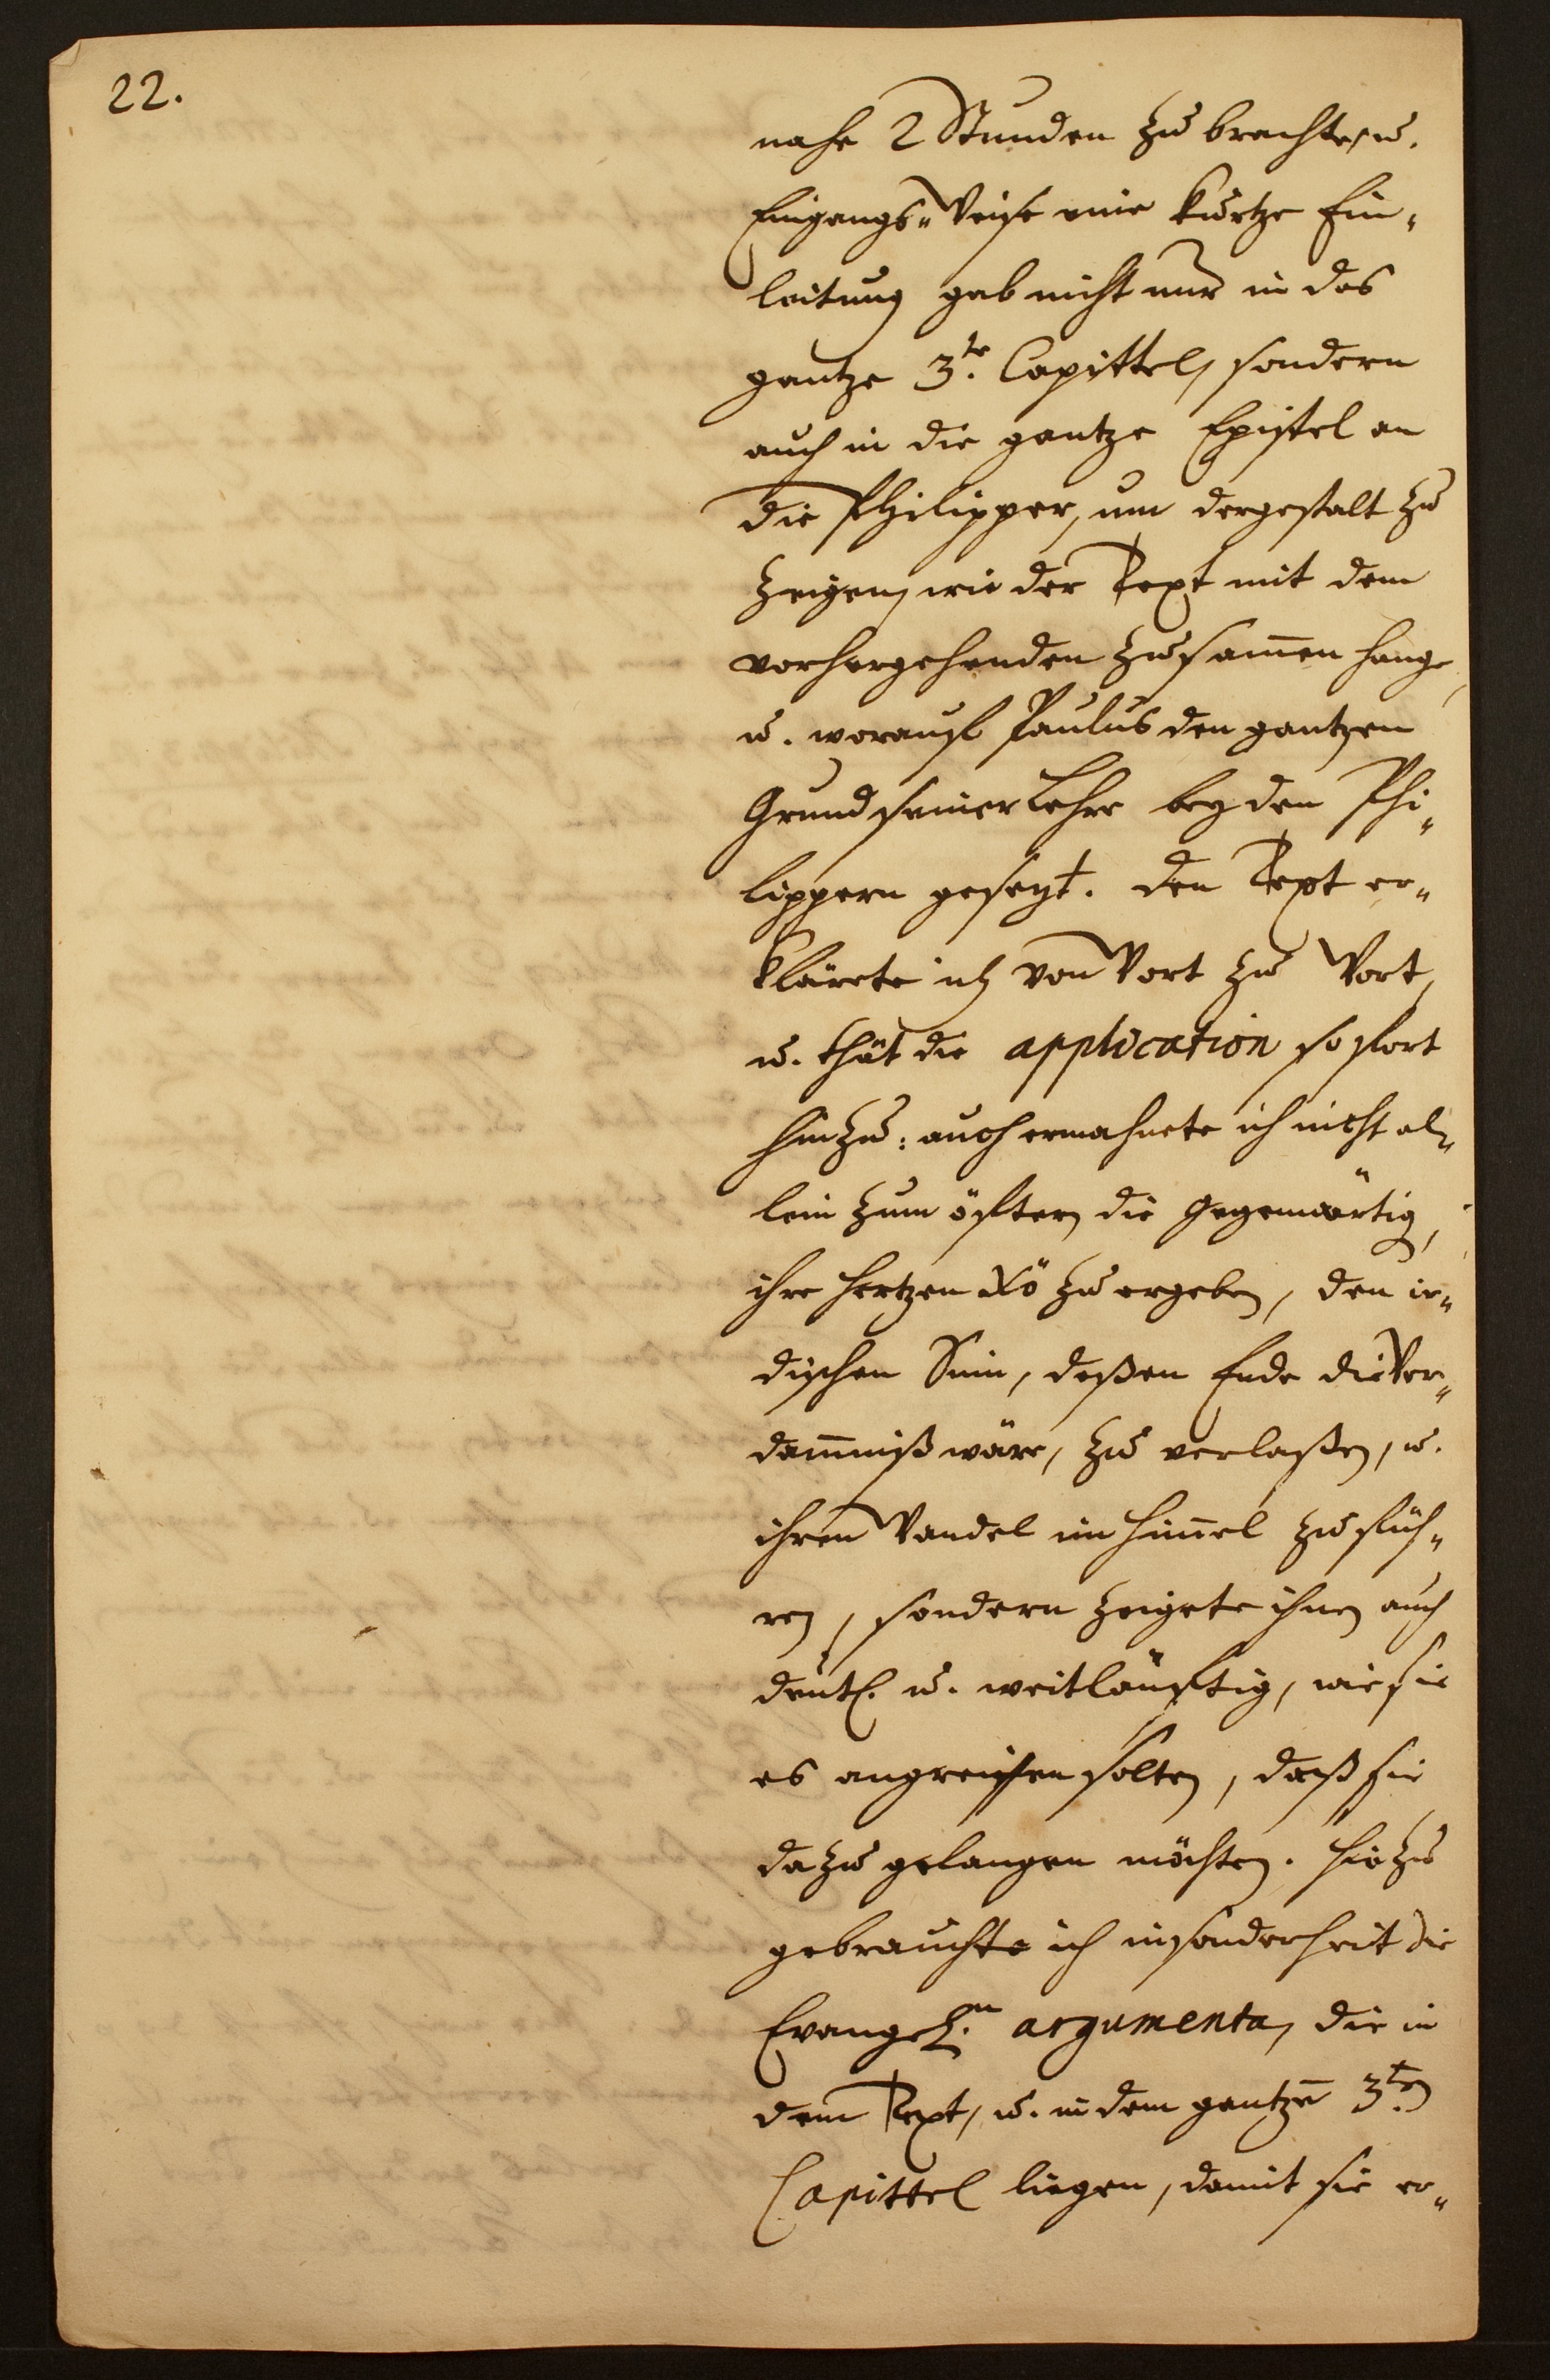 22.
nahe 2 Stunden zu brachte, u.
Eingangs-Weise eine kurtze Ein-
leitung gab nicht nur in das
gantze 3.te Capittel, sondern
auch in die gantze Epistel an
die Philipper, um dergestalt zu
zeigen, wie der Text mit dem
vorhergehenden zusam̄en hange,
u. worauf Paulus den gantzen
Grund seiner Lehre bey den Phi-
lippern gesetzt. Den Text er-
klärete ich von Wort zu Wort,
u. thät die application sofort
hinzu: auch ermahnete ich nicht al-
lein zum öftern die Gegenwärtig,
ihre Hertzen Xō zu ergeben, den ir-
dischen Sinn, deßen Ende die Ver-
dam̄niß wäre, zu verlaßen, u.
ihren Wandel im Him̄el zu füh-
ren, sondern zeigete ihnen auch
deutl. u. weitläuftig, wie sie
es angreiffen solten, daß sie
dazu gelangen möchten. Hiezu
gebrauchte ich insonderheit die
Evangel.n argumenta, die in
dem Text, u. in dem gantzen̄ 3.ten
Capittel liegen, damit sie er-